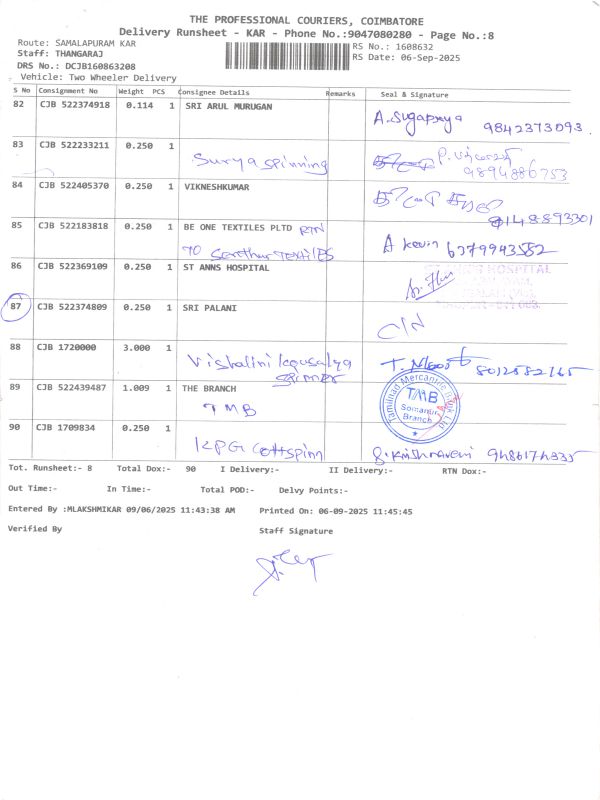 THE PROFESSIONAL COURIERS, COIMBATORE
Delivery Runsheet - KAR - Phone No.:9047080280 - Page No.:8
Route: SAMALAPURAM KAR
RS No.: 1608632
Staff: THANGARAJ
RS Date: 06-Sep-2025
DRS No.: DCJB160863208
Vehicle: Two Wheeler Delivery
S No Consignment No Weight PCS Consignee Details Remarks Seal & Signature
82 CJB 522374918 0.114 1 SRI ARUL MURUGAN
A.Sugapraya 9842373093.
83 CJB 522233211 0.250 1
Surya spinning
9894886753
84 CJB 522405370 0.250 1 VIKNESHKUMAR
9148893301
85 CJB 522183818 0.250 1 BE ONE TEXTILES PLTD RTN
TO Textiles A kevin 6379943552
86 CJB 522369109 0.250 1 ST ANNS HOSPITAL
HOSPITAL
87 CJB 522374809 0.250 1 SRI PALANI
C/N
88 CJB 1720000 3.000 1
Vishalini kousalya
8012582165
89 CJB 522439487 1.009 1 THE BRANCH
TMB
Tamilnad Mercantile Bank Ltd
TMB
Somanur
Branch
90 CJB 1709834 0.250 1
KPG Cottspinn
Tot. Runsheet:- 8 Total Dox:- 90 I Delivery:- II Delivery:- RTN Dox:-
Out Time:- In Time:- Total POD:- Delvy Points:-
Entered By :MLAKSHMIKAR 09/06/2025 11:43:38 AM Printed On: 06-09-2025 11:45:45
Verified By Staff Signature